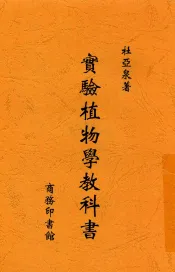 杜亞泉著
實驗植物學教科書
商務印書館